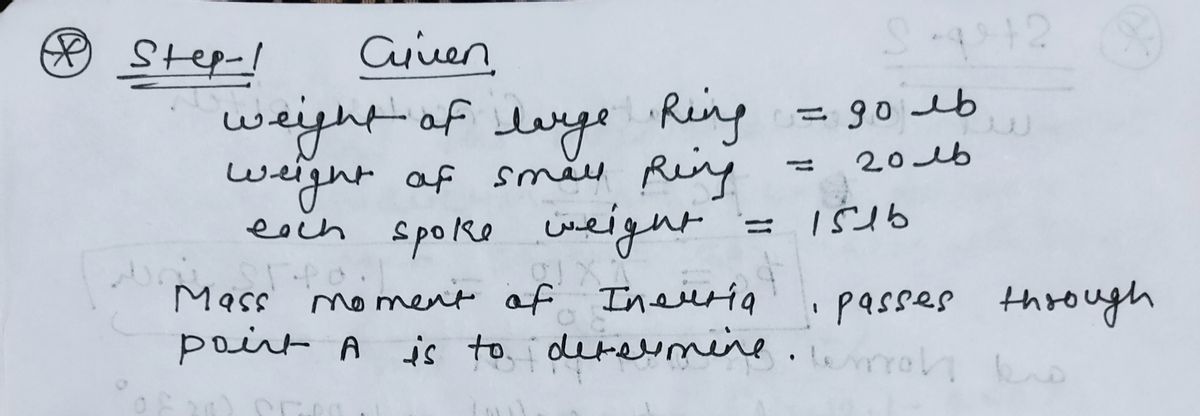 Step-1 Given
weight of large Ring = 90 lb
weight of small Ring = 20 lb
each spoke weight = 15 lb
Mass moment of Inertia, passes through
point A is to determine.